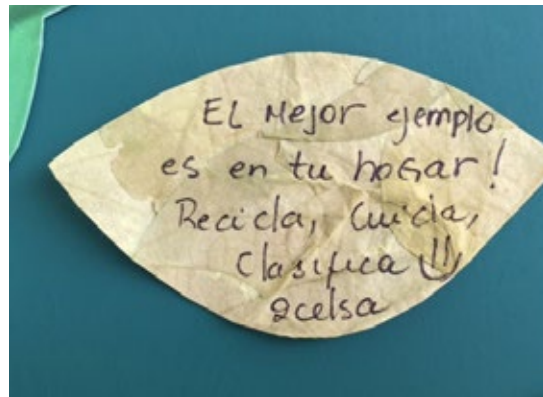 EL Mejor ejemplo
es en tu hogar!
Recicla, Cuicia,
Clasifica